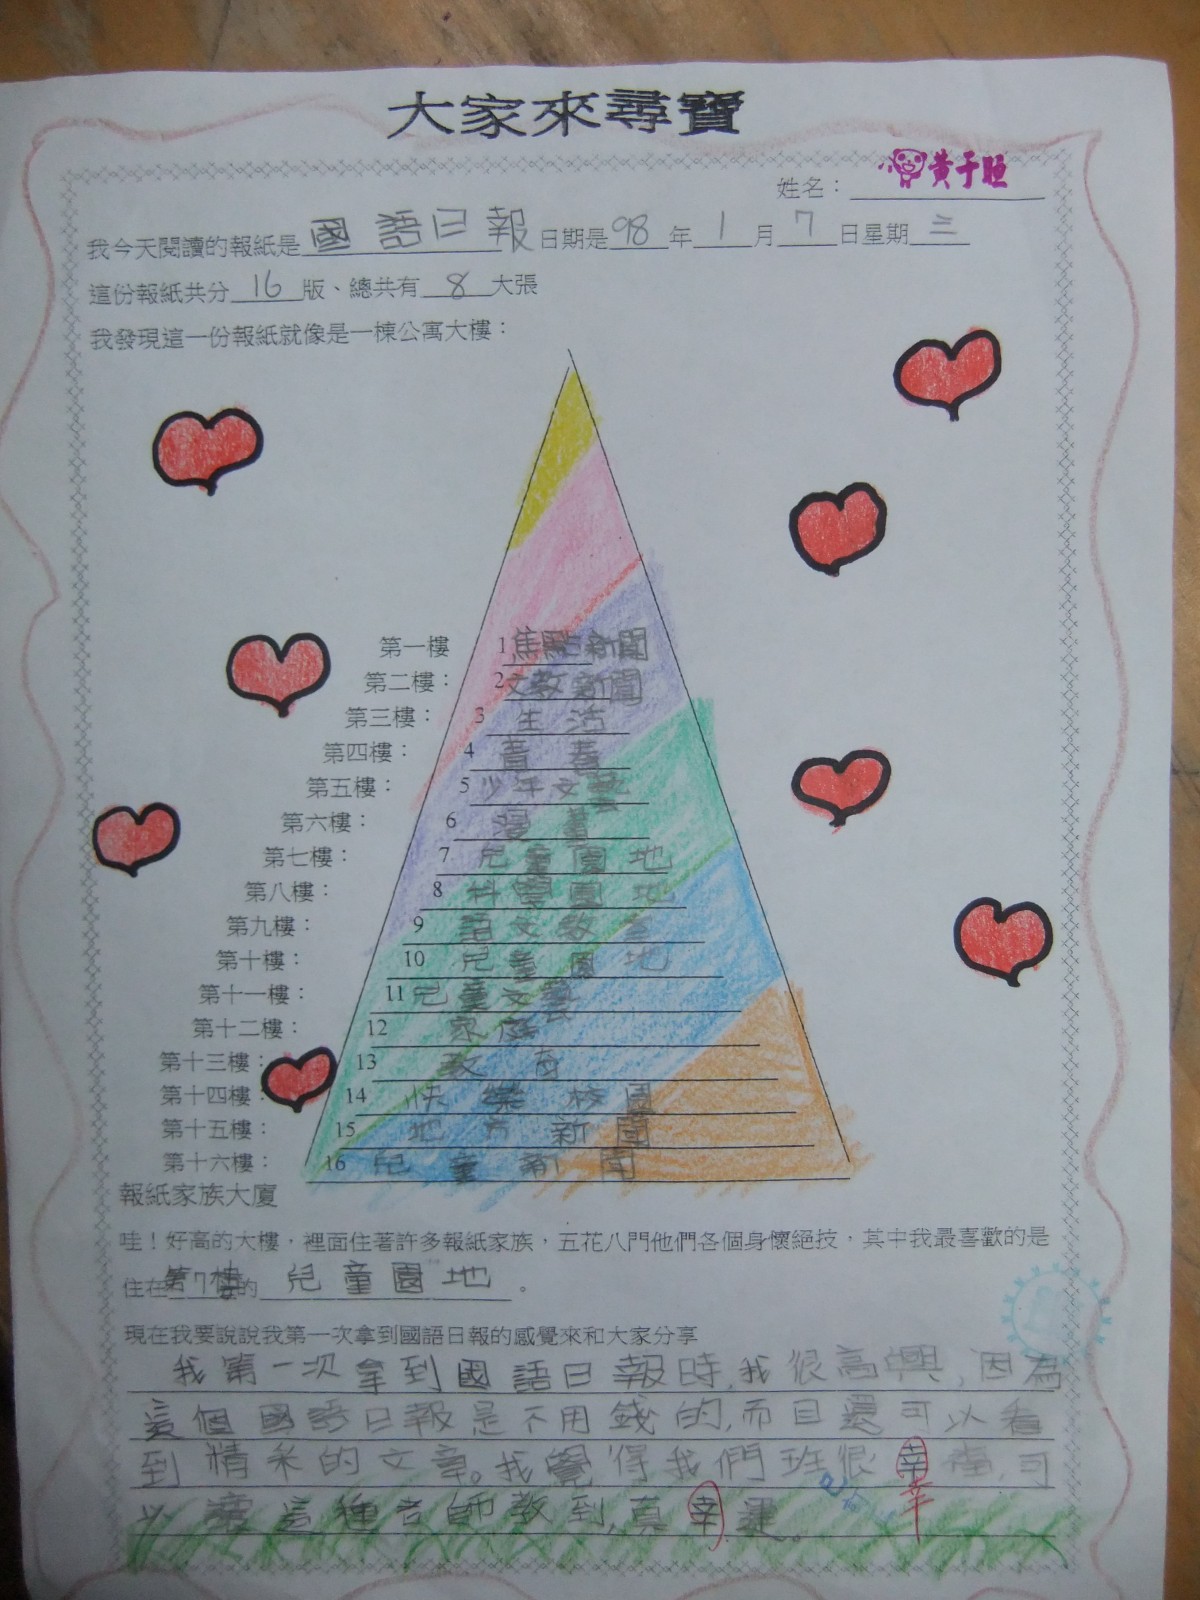 大家來尋寶
姓名：黃于
我今天閱讀的報紙是國語日報日期是98年1月7日星期三
這份報紙共分16版、總共有8大張
我發現這一份報紙就像是一棟公寓大樓：
第一樓 1焦點新聞
第二樓： 2文教新聞
第三樓： 3 生活
第四樓： 4 青春
第五樓： 5 少年文藝
第六樓： 6 漫畫
第七樓： 7 兒童園地
第八樓： 8 科學園地
第九樓： 9 語文教室
第十樓： 10 兒童園地
第十一樓： 11兒童文藝
第十二樓： 12 家庭
第十三樓： 13 教育
第十四樓： 14 快樂校園
第十五樓： 15 地方新聞
第十六樓： 16 兒童新聞
報紙家族大廈
哇！好高的大樓，裡面住著許多報紙家族，五花八門他們各個身懷絕技，其中我最喜歡的是
住在第7樓的兒童園地。
現在我要說說我第一次拿到國語日報的感覺來和大家分享
我第一次拿到國語日報時,我很高興,因為
這個國語日報是不用錢的,而且還可以看
到精釆的文章。我覺得我們班很幸福,可
幸
以讓這種老師教到,真幸運。